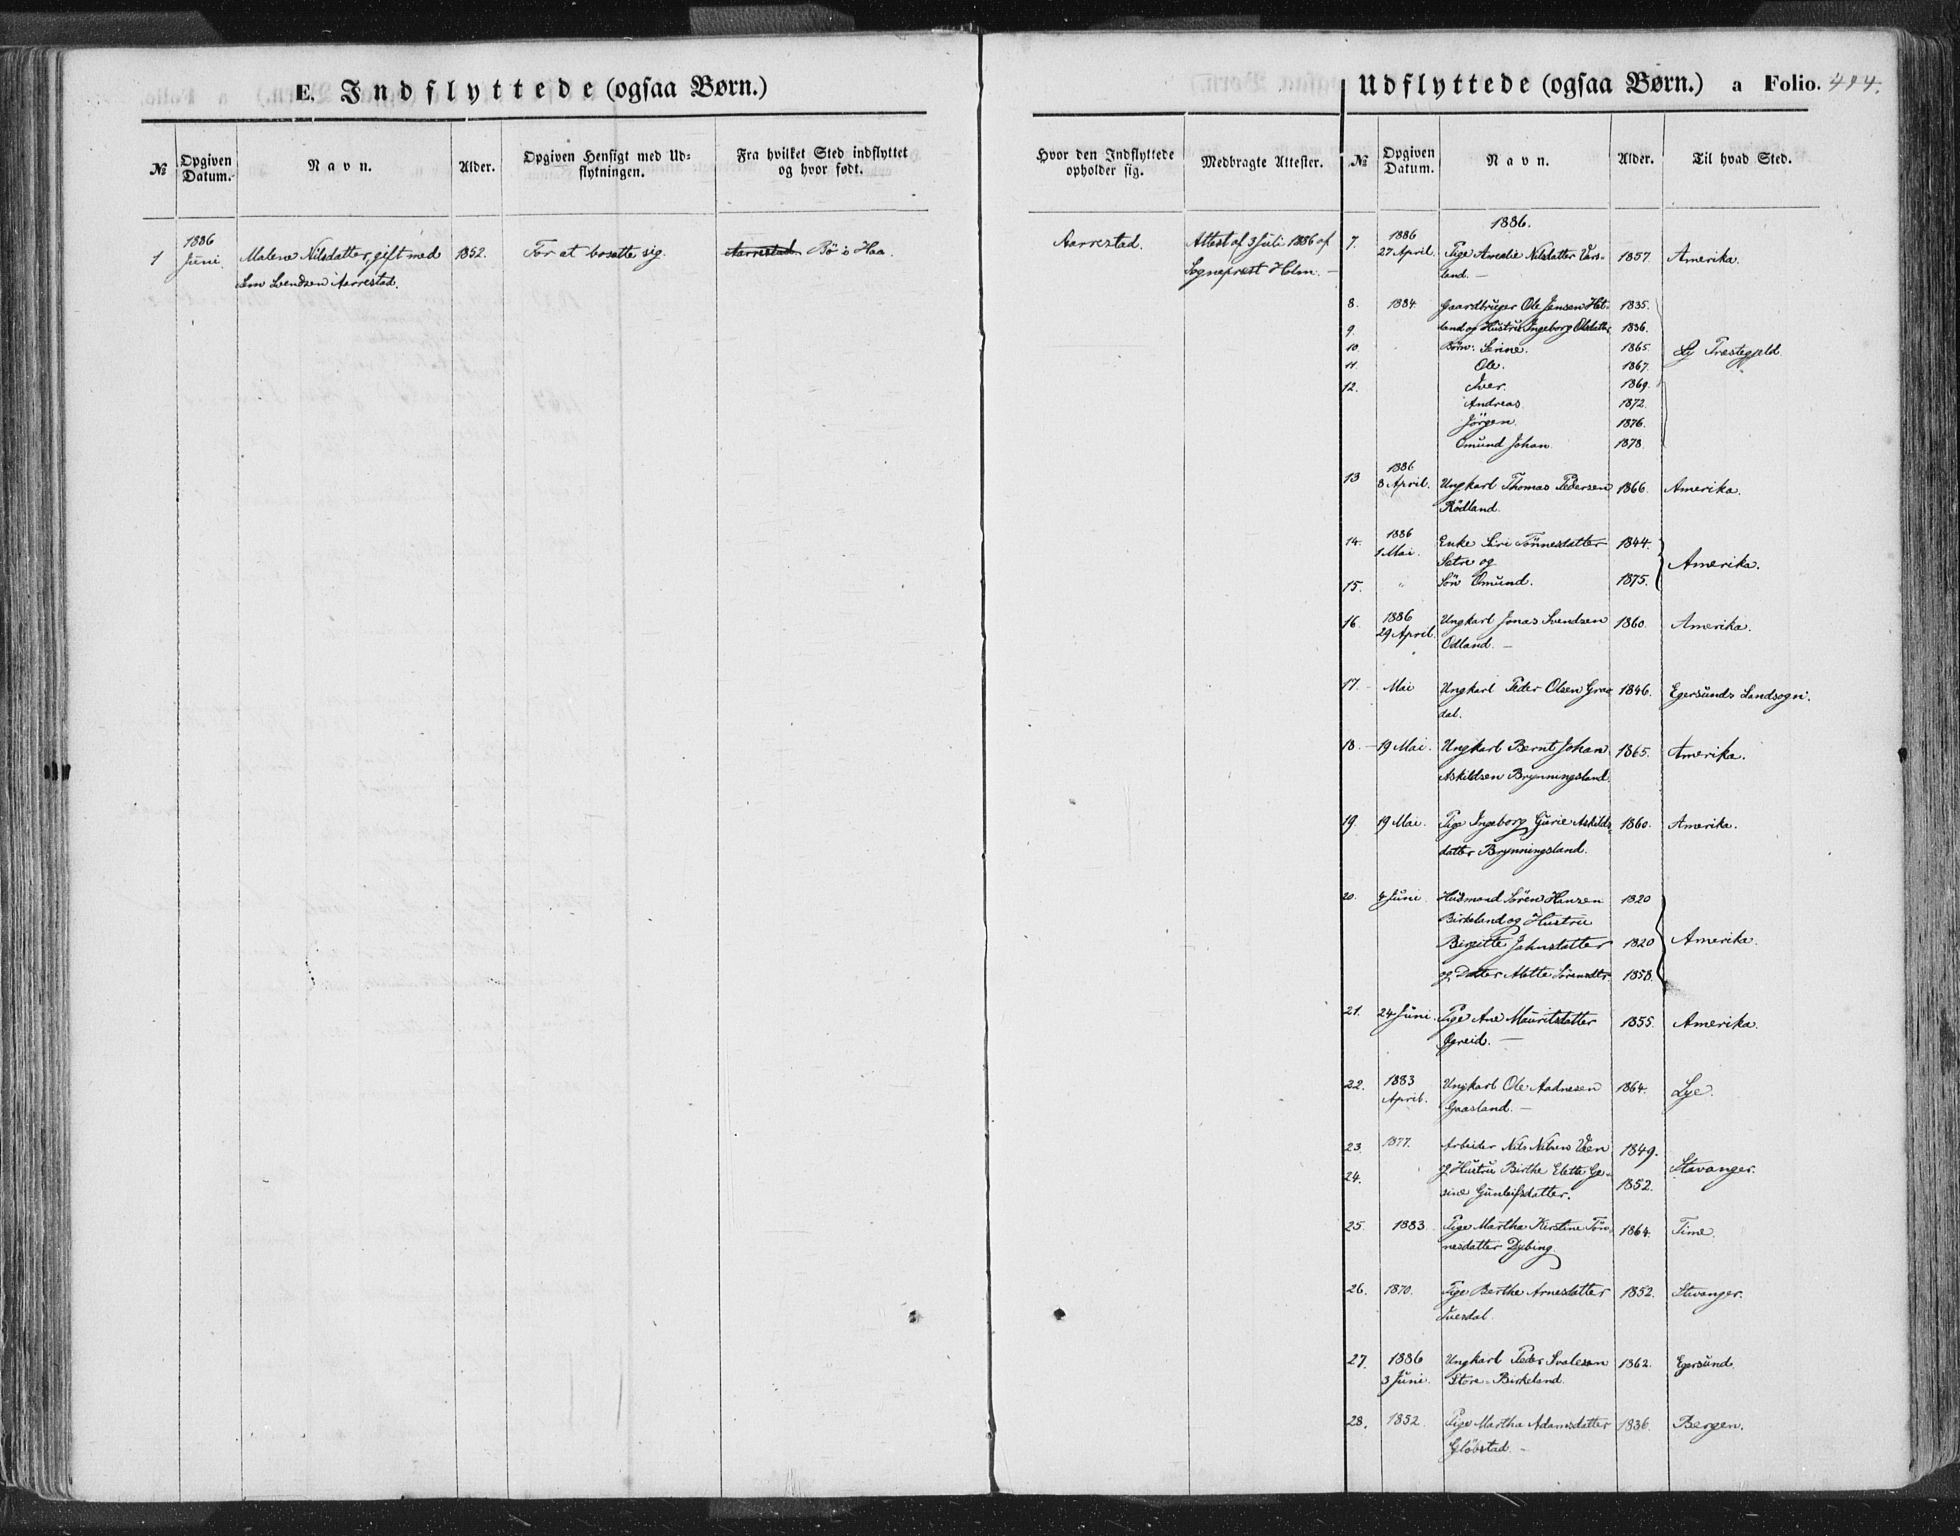 E. Indflyttede (ogsaa Børn.)
№
Opgiven Datum.
Navn.
Alder.
Opgiven Hensigt med Udflytningen.
Fra hvilket Sted indflyttet og hvor født.
1
1886
Juni.
Malene Nilsdatter, gift med
Svendsen Aarrestad.
1852.
For at bosætte sig.
Aarrestad. Bø i Haa.
Udflyttede (ogsaa Børn.) a Folio. 414.
Hvor den Indflyttede opholder sig.
Medbragte Attester.
№
Opgiven Datum.
Navn.
Alder.
Til hvad Sted.
Aarrestad.
Attest af 3 Juli 1886 af
Sogneprest Holm. —
1886.
7. 1886
27 April. Pige Amalie Nilsdatter
land. — 1857. Amerika.
8. 1884 Gaardbruger Ole Jensen Het- 1835.
9. land og Hustru Ingeborg Olsdatter 1836.
10. Børn: Serine. 1865. Ly Præstegjeld.
11. Ole. 1867.
12. Iver. 1869.
Andreas 1872.
Jörgen. 1876.
Omund Johan. 1878.
13 1886
8 April. Ungkarl Thomas Pedersen 1866. Amerika.
Rödland.
14. 1886 Enke Siri Tönnesdatter 1844.
1 Mai. Sætre og Amerika.
15. " Sön Omund. 1875.
16. 1886 Ungkarl Jonas Svendsen 1860. Amerika.
29 April. Odland. —
17. — Mai Ungkarl Peder Olsen Gra- 1846. Egersunds Landsogn.
dal.
18. — 19 Mai. Ungkarl Bernt Johan 1865. Amerika.
Askildsen Brynningsland.
19. 19 Mai. Pige Ingeborg Gurie Askilds- 1860. Amerika.
datter Brynningsland.
20. 4 Juni Husmand Sören Hansen 1820
Birkeland og Hustru
Birgitte Jahnsdatter 1820 Amerika.
og Datter Mette Sörensdtr. 1858.
21. 24 Juni. Pige Ane Mauritsdatter 1855. Amerika.
Ögreid. —
22. 1883 Ungkarl Ole Aadnesen 1864. Lye.
April. Gaasland. —
23. 1877. Arbeider Nils Nilsen Veen 1849.
24. og Hustru Birthe Elette Ge- Stavanger.
sine Gunleifsdatter. 1852.
25. 1883. Pige Martha Kirstine Tön- 1864. Time.
nesdatter Dybing.
26. 1870. Pige Berthe Arnesdatter 1852. Stavanger.
Ivesdal.
27. 1886 Ungkarl Peder Svalesen 1862. Egersund.
3 Juni. Store-Birkeland.
28. 1852. Pige Martha Adamsdatter 1836. Bergen.
Glöbstad. —